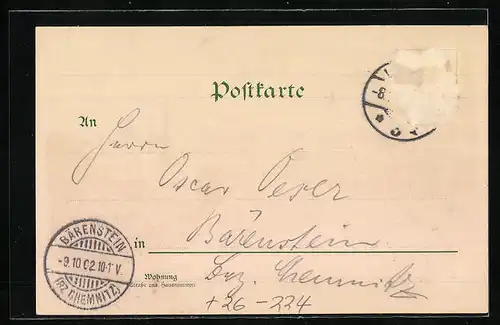 Postkarte
-8.
An
Herrn
Oscar Oeser
in Bärenstein
Bez. Chemnitz
Wohnung
(Straße und Hausnummer)
+26-224
BÄRENSTEIN
-9.10.02.10-1V.
(BZ. CHEMNITZ)